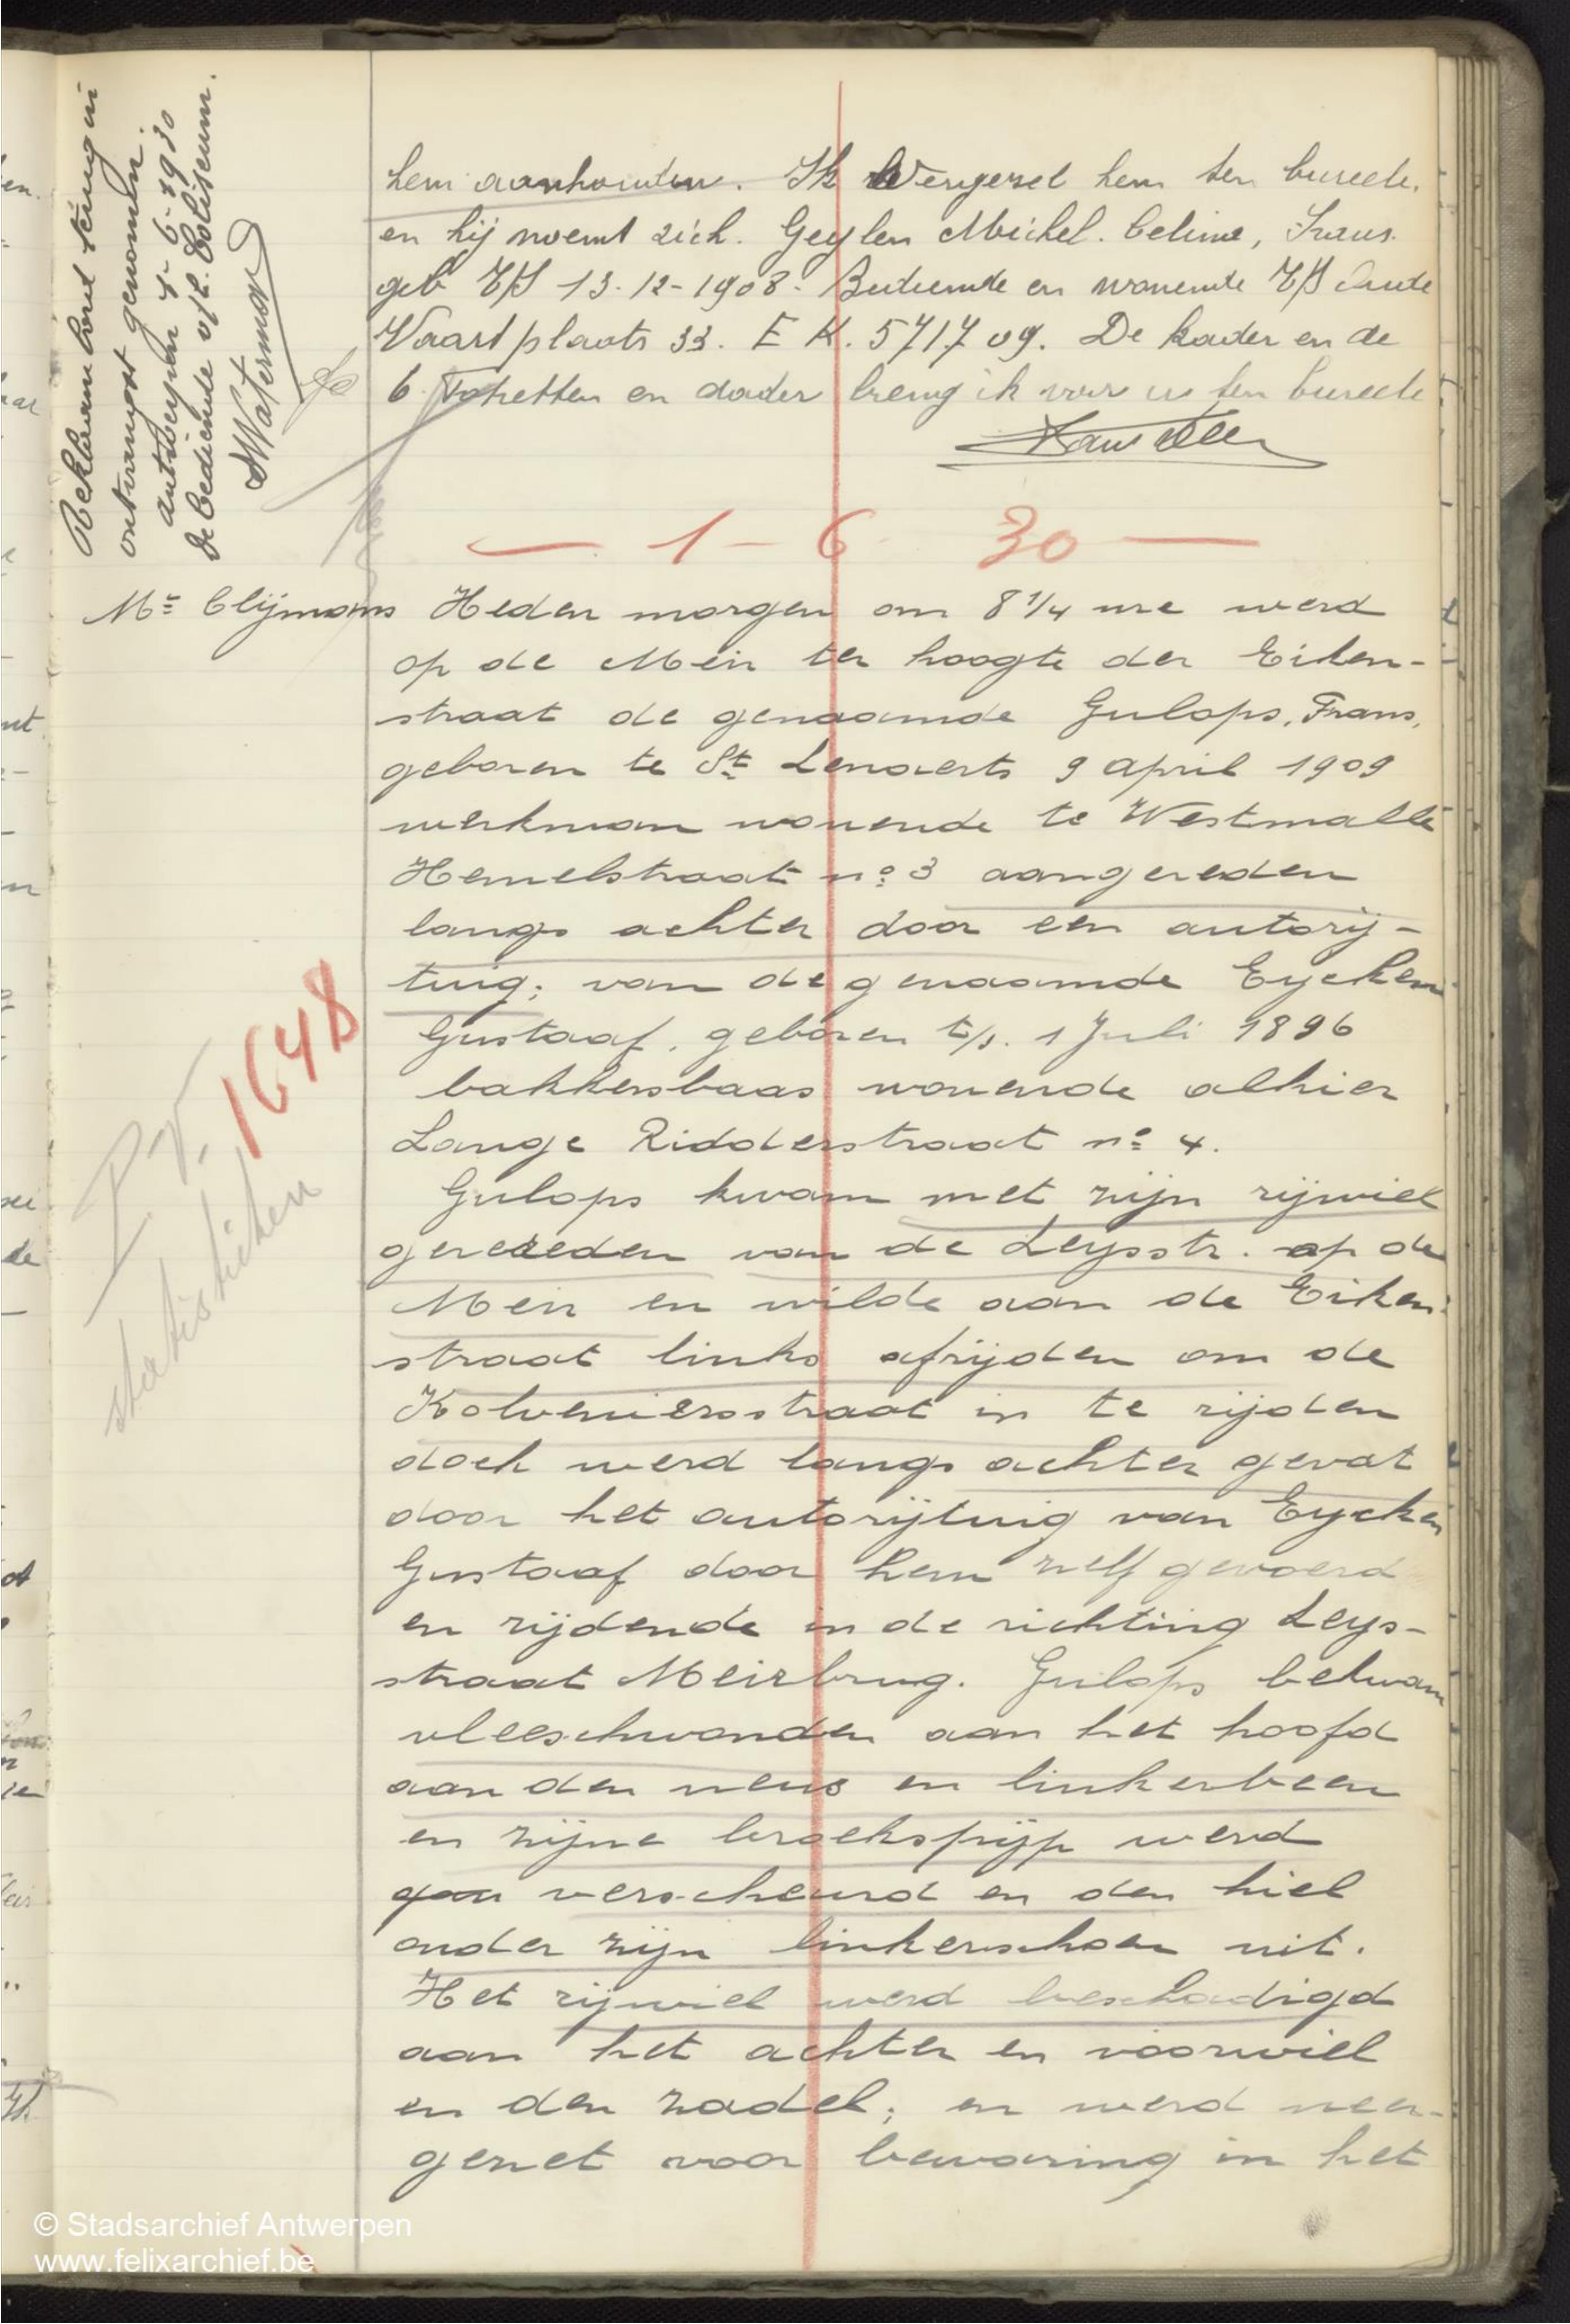 Reklaam bord terug in
ontvangst genomen.
Antwerpen 4-6-1930
de bediende v/h. Coliseum.
Waterman
hem aanhouden. Ik vergezel hem ten bureele.
en hij noemt zich. Geylen Michel. Celine, Frans.
geb T/S 13-12-1908. Bediende en wonende T/S Oude
Vaartplaats 33. E K. 571709. De kader en de
6 en dader breng ik voor u ten bureele
— 1 - 6 30 —
Mr Clijmans
Heden morgen om 8 1/4 ure werd
op de Meir ter hoogte der Eiken-
straat de genaamde Gulops, Frans,
geboren te St Lenaerts 9 april 1909
werkman wonende te Westmalle
Hemelstraat no 3 aangereden
langs achter door een autorij-
tuig; van de genaamde Eycken
Gustaaf, geboren t/s. 1 Juli 1896
bakkersbaas wonende alhier
Lange Ridderstraat no 4.
P.V. 1648
statistieken
Gulops kwam met zijn rijwiel
gereden van de Leysstr. op de
Meir en wilde aan de Eiken-
straat links afrijden om de
Kolveniersstraat in te rijden
doch werd langs achter gevat
door het autorijtuig van Eycken
Gustaaf door hem zelf gevoerd
en rijdende in de richting Leys-
straat Meirbrug. Gulops bekwam
vleeschwonden aan het hoofd
aan den neus en linkerbeen
en zijne broekspijp werd
verscheurd en den hiel
onder zijn linkerschoen uit.
Het rijwiel werd beschadigd
aan het achter en voorwiel
en den zadel; en werd neer-
gezet voor bewaring in het
© Stadsarchief Antwerpen
www.felixarchief.be